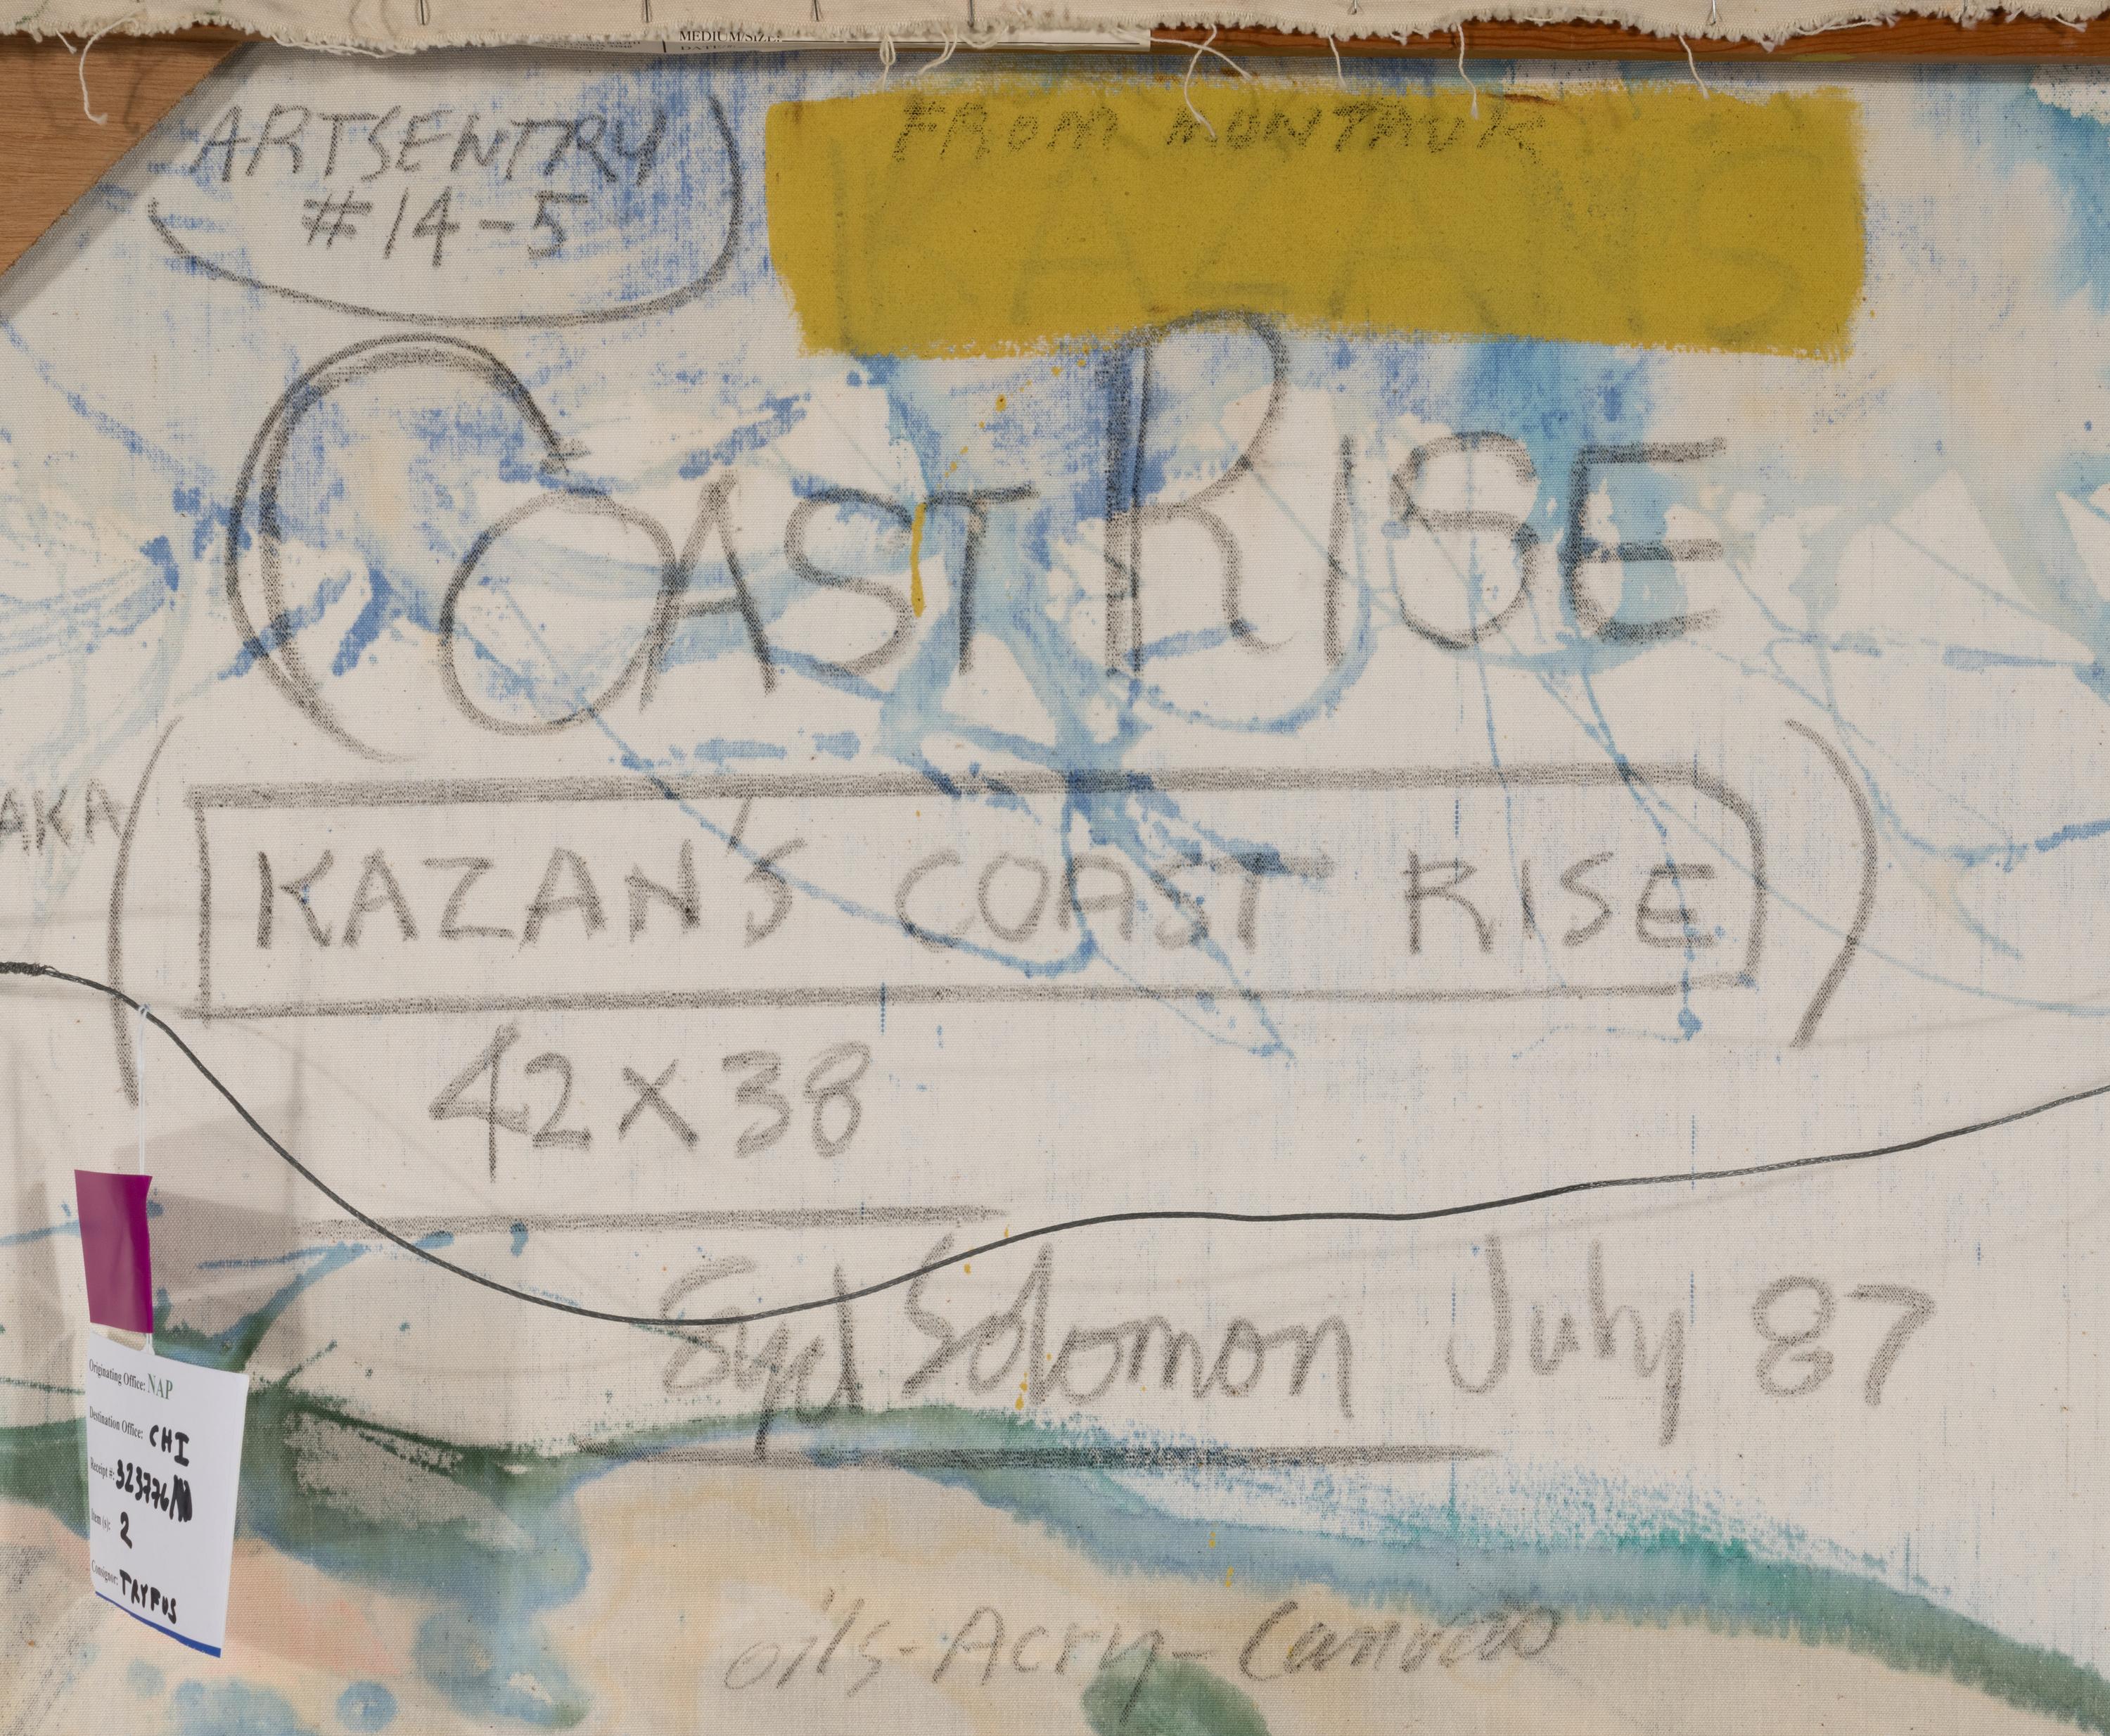 MEDIUM/SIZE:
ARTSENTRY
#14-5
FROM MONTAUK
KAZANS
COAST RISE
AKA
KAZAN'S COAST RISE
42x38
Syd Solomon July 87
oils-Acry-Canvas
Originating Office: NAP
Destination Office: CHI
Receipt #: 323776/
Item(s): 2
Consignor: TRYFUS